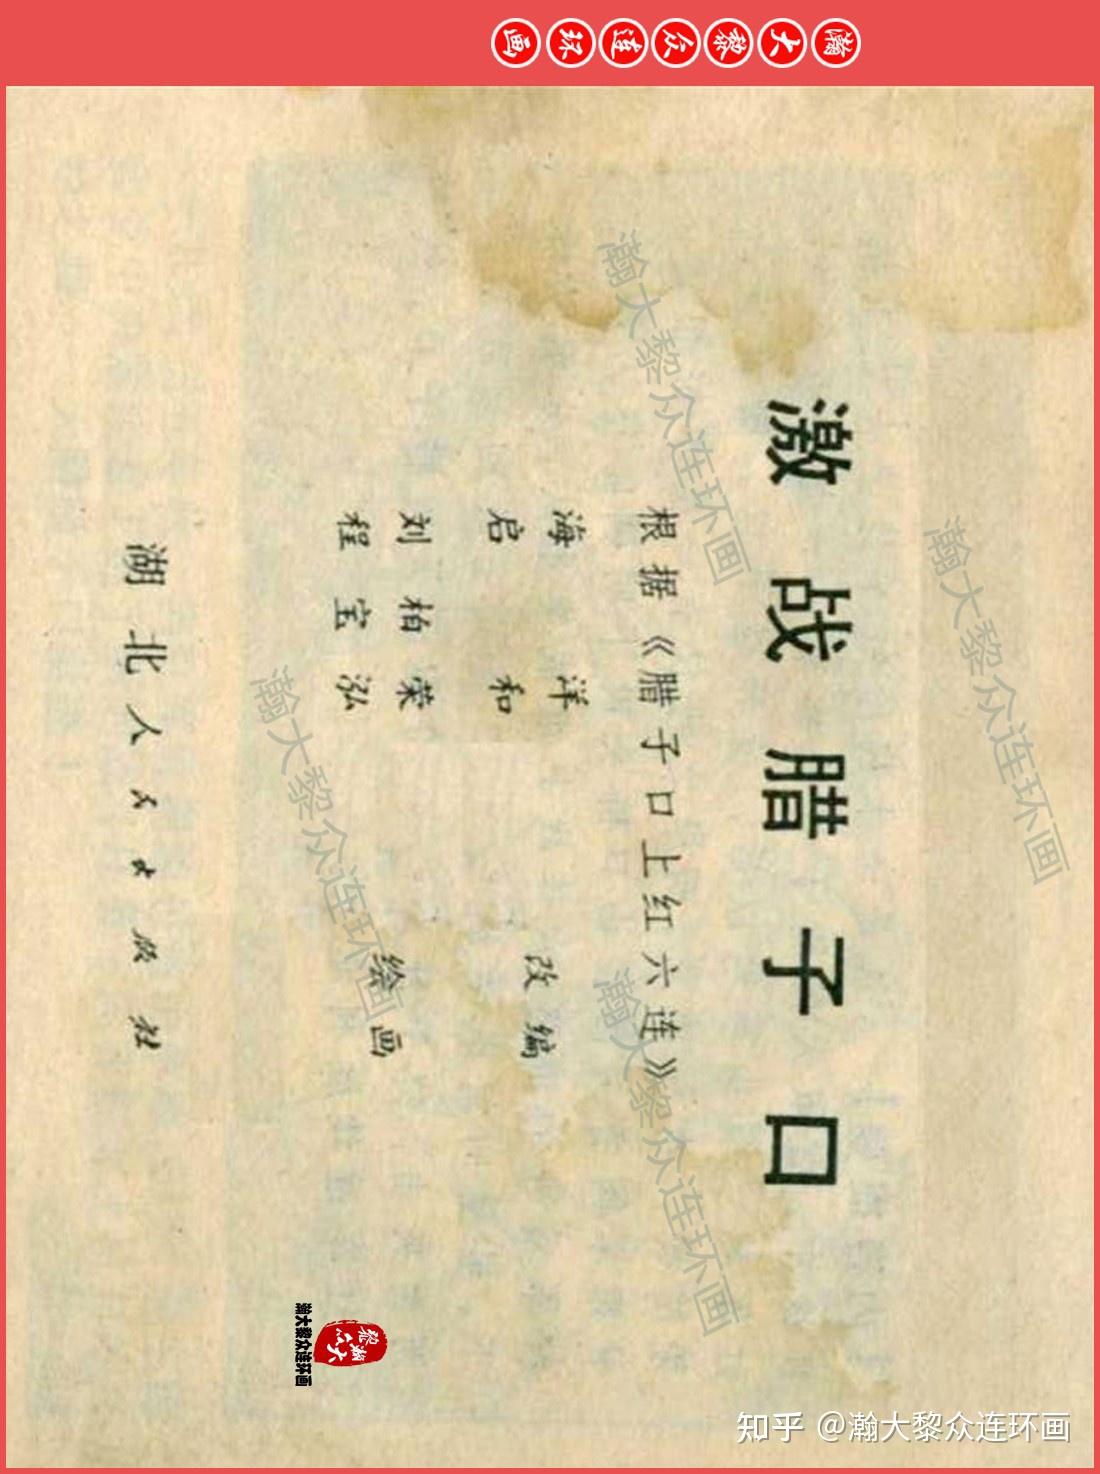 瀚大黎众连环画
激战腊子口
根据《腊子口上红六连》
海洋
启和
改编
刘柏荣
程宝泓
绘画
湖北人民出版社
瀚大黎众连环画
瀚大黎众连环画
瀚大黎众连环画
瀚大黎众连环画
瀚大黎众
瀚大黎众连环画
知乎 @瀚大黎众连环画